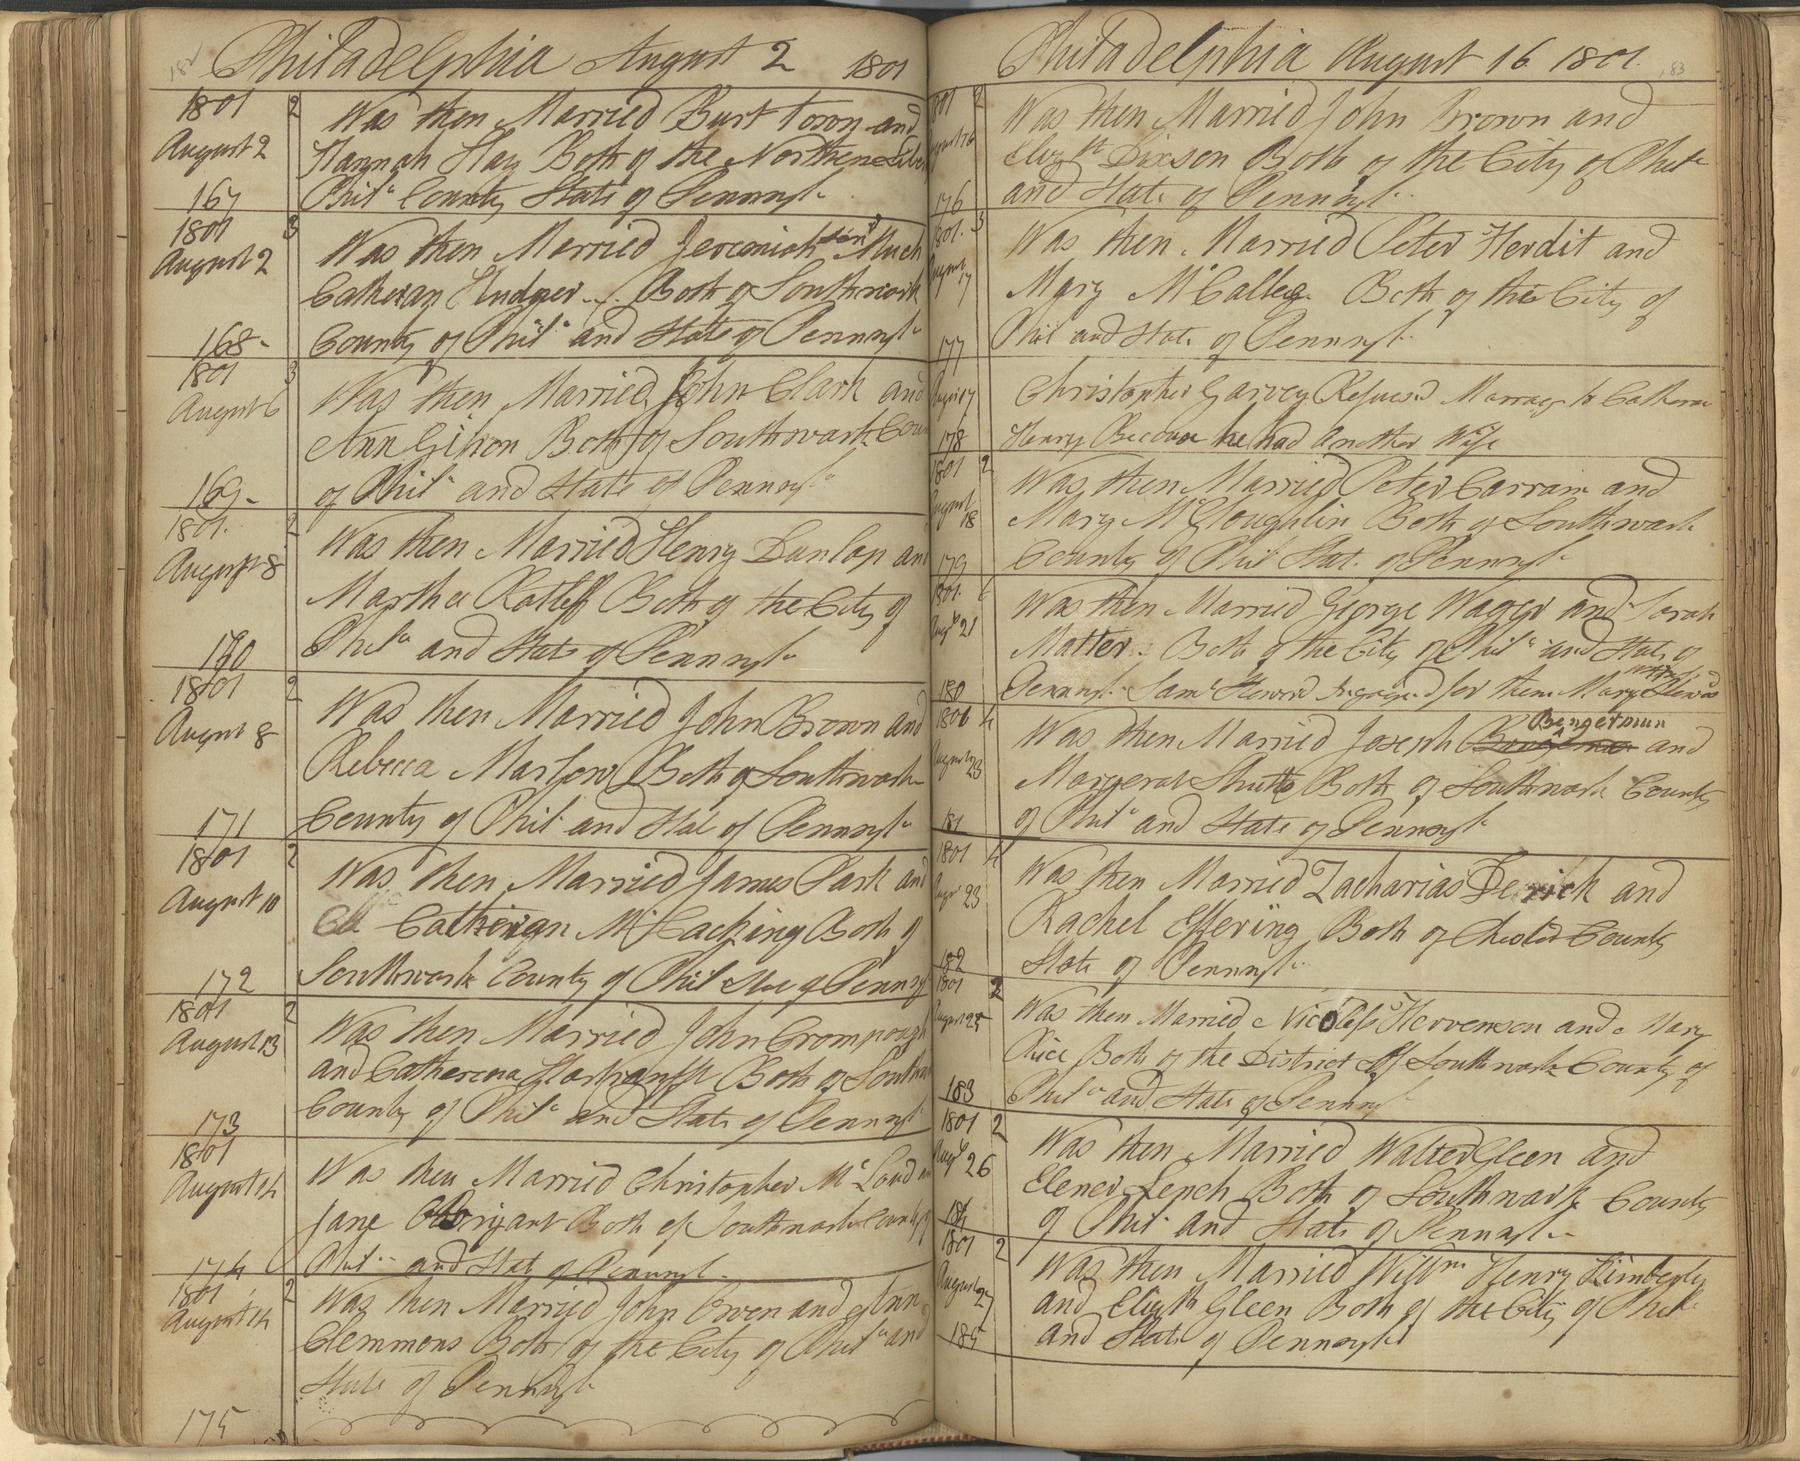 182 Philadelphia August 2 1801
1801 2 Was then Married Burt Town and
August 2 Hannah Hay Both of the Northen Liber
167 Phila County State of Pennsyla
1801 3 Was then Married Jeremiah Much
August 2 Catheran Hudger Both of Southwark
168 County of Phila and State of Pennsyla
1801 3 Was then Married John Clark and
August 6 Ann Gibson Both of Southwark Coun
169 of Phila and State of Pennsyla
1801 2 Was then Married Henry Dunlap and
August 8 Martha Ratliff Both of the City of
170 Phila and State of Pennsyla
1801 2 Was then Married John Brown and
August 8 Rebecca Marlow Both of Southwark
171 County of Phila and State of Pennsyla
1801 2 Was then Married James Park and
August 10 Catherian Both of
172 Southwark County of Phila State of Pennsy
1801 2 Was then Married John
August 13 and Catherena Both of Southw
173 County of Phila and State of Pennsyl
1801 Was then Married Christopher McLoud
August 14 Jane Both of Southwark County of
174 Phila and Stat of Pennsyl
1801 2 Was then Married John Owen and Ann
August 14 Clemmons Both of the City of Phila and
State of Pennsyl
175
Philadelphia August 16 1801 183
1801 2 Was then Married John Brown and
August 16 Elizth Dixson Both of the City of Phila
176 and State of Pennsyl
1801 3 Was then Married Peter Herdit and
August 17 Mary Both of the City of
177 Phil and State of Pennsyl
August 17 Christopher Garvey Refused Marraig to Catherin
178 Henry Because he had Another Wife
1801 2 Was then Married Peter Carrain and
August 18 Mary McGloughlin Both of Southwark
179 County of Phil State of Pennsyl
1801 Was then Married George Wager and Sarah
Augt 21 Matter Both of the City of Phila and State of
180 Pennsyl Saml for them Mary
1801 4 Was then Married Joseph Bengerman and
August 23 Margerat Shutte Both of Southwark County
181 of Phila and State of Pennsyl
1801 4 Was then Married Zacharias Derrick and
Augt 23 Rachel Effering Both of Chester County
182 State of Pennsyl
1801 2 Was then Married Nicolass Hervenson and Mary
August 25 Rice Both of the District of Southwark County of
183 Phila and State of Pennsyl
1801 2 Was then Married Walter Gleen and
Augt 26 Elener Lench Both of Southwark County
184 of Phila and State of Pennsyl
1801 2 Was then Married Willm Henry Kimberly
August 27 and Elizth Gleen Both of the City of Phil
185 and State of Pennsyl